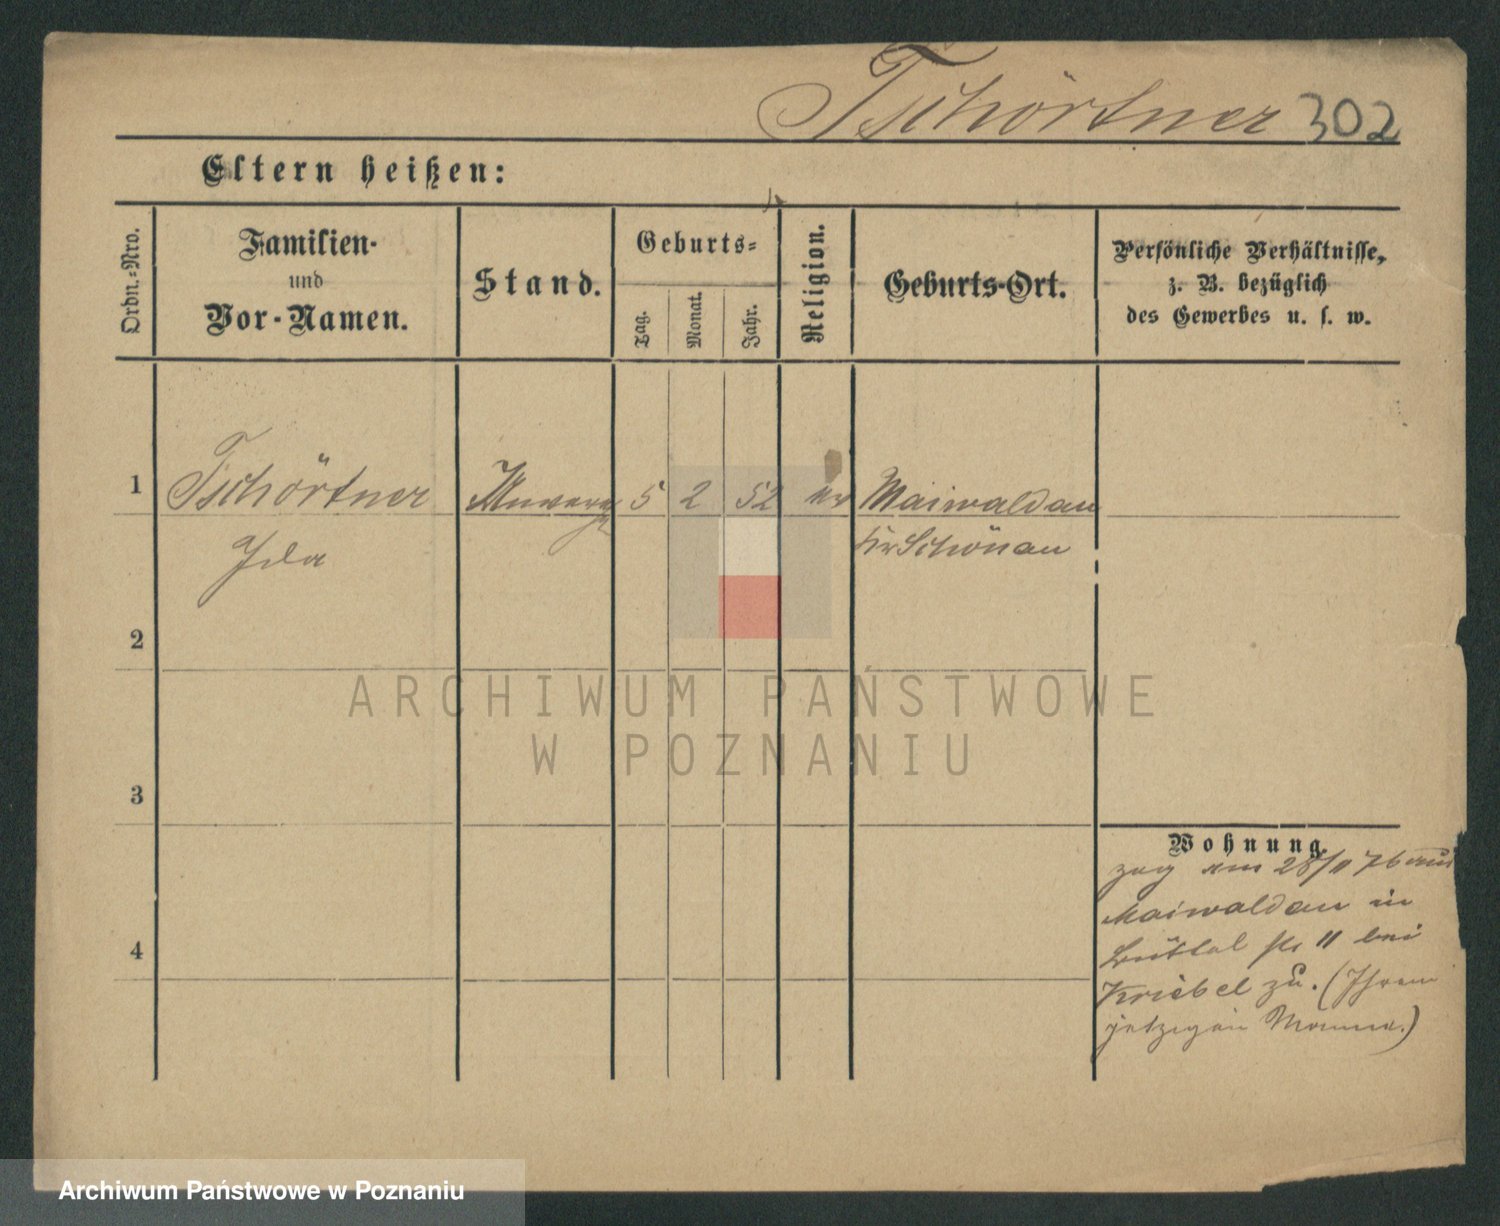 Tschörtner 302
Eltern heißen:
Ordn.-Nro.
Familien-
und
Vor-Namen.
Stand.
Geburts-
Tag.
Monat.
Jahr.
Religion.
Geburts-Ort.
Persönliche Verhältnisse,
z. B. bezüglich
des Gewerbes u. s. w.
1 Tschörtner 5 2 52 ev Maiwaldau
Ida Kr Schönau
2
3
4
Wohnung.
zog am 28/11 76 aus
Maiwaldau in
11 bei
Kriebel zu. (Ihrem
jetzigen Manne.)
ARCHIWUM PAŃSTWOWE
W POZNANIU
Archiwum Państwowe w Poznaniu